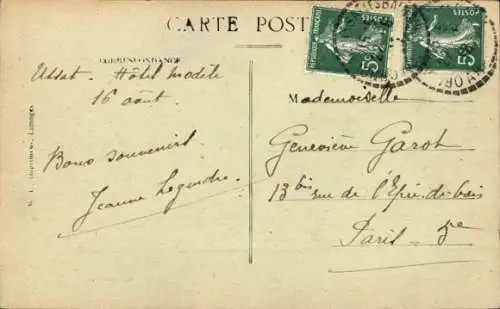 CARTE POST
CORRESPONDANCE
Ussat - Hôtel Modèle
16 août
Bons souvenirs
Jeanne Legendre
Mademoiselle
Geneviève Garot
13 bis rue de l'Epée-de-bois
Paris - 5e
REPUBLIQUE FRANÇAISE
POSTES
5
POSTES
5